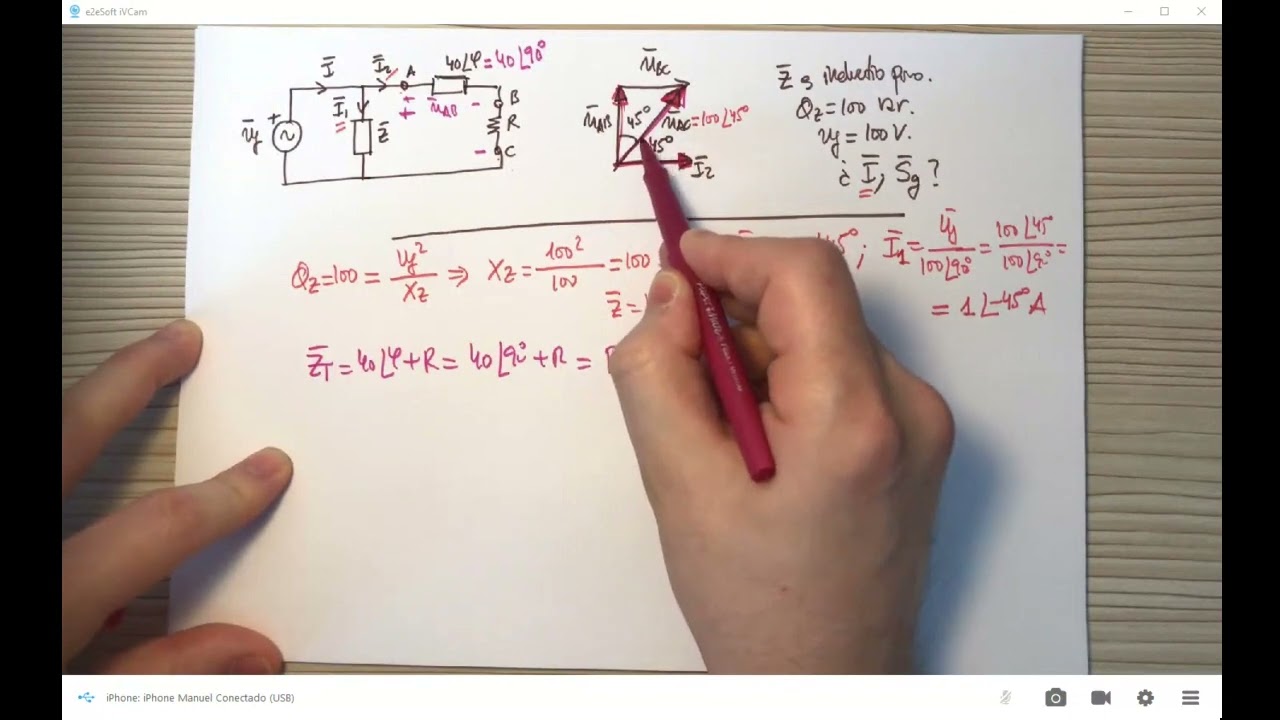 e2eSoft iVCam
Ī Ī₂ A 40∠φ = 40∠90°
+ ū_AB - B
Ī₁ Z̄ R
ū_g + - C
ū_BC
ū_AB 45° ū_AC = 100∠45°
45° Ī₂
Z̄ es inductio pura.
Q_Z = 100 VAr.
u_g = 100 V.
¿ Ī, S̄_g ?
Q_Z = 100 = u_g² / X_Z ⇒ X_Z = 100² / 100 = 100
45° ; Ī₁ = ū_g / 100∠90° = 100∠45 / 100∠90° =
Z̄ = = 1∠-45° A
Z̄_T = 40∠φ + R = 40∠90° + R =
iPhone: iPhone Manuel Conectado (USB)